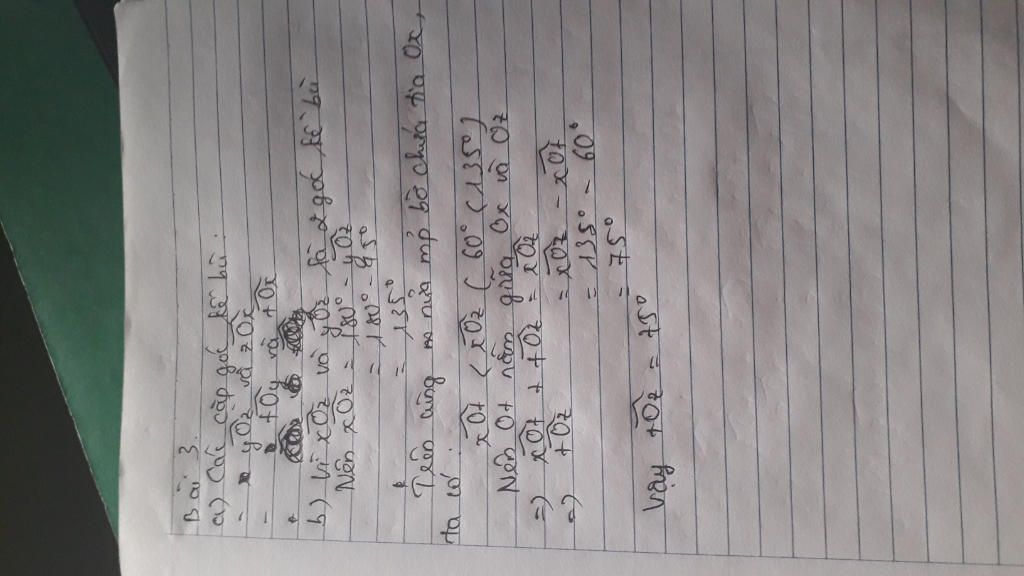 Bài 3.
a) Các cặp góc kề bù:
- yOz và zOx
- tOy và tOx
b) Vì xOz và yOz là 2 góc kề bù
Nên xOz = 180° - yOz
= 180° - 45°
= 135°
Trên cùng m nửa mp bờ chứa tia Ox,
ta có:
xOt < xOz (60° < 135°)
Nên Ot nằm giữa Ox và Oz
=> xOt + tOz = xOz
=> tOz = xOz - xOt
= 135° - 60°
= 75°
Vậy tOz = 75°